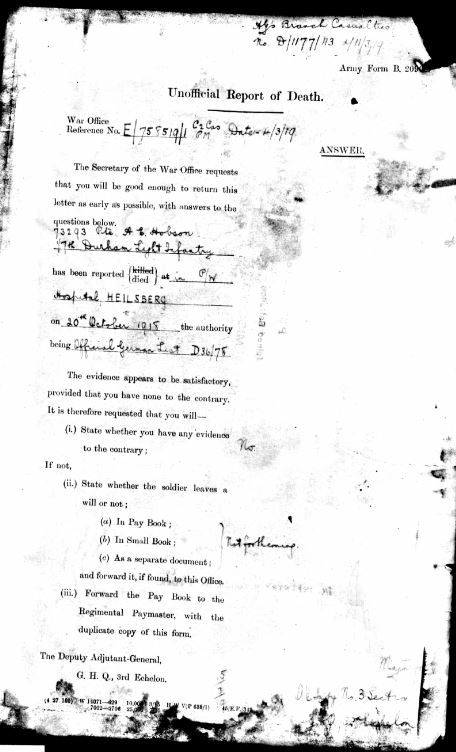 AG's Branch Casualties
No. D/1177/113
Army Form B. 209
Unofficial Report of Death.
War Office
Reference No. E/758519/1 C2 Cas PM Date 4/3/19
ANSWER.
The Secretary of the War Office requests
that you will be good enough to return this
letter as early as possible, with answers to the
questions below.
73293 Pte A E Hobson
Durham Light Infantry
has been reported {killed died} at in P/W
Hospital, HEILSBERG
on 20th October 1918 the authority
being Official German List D36/78
The evidence appears to be satisfactory,
provided that you have none to the contrary.
It is therefore requested that you will—
(i.) State whether you have any evidence
to the contrary;
No.
If not,
(ii.) State whether the soldier leaves a
will or not;
(a) In Pay Book;
(b) In Small Book;
Not forthcoming.
(c) As a separate document;
and forward it, if found, to this Office.
(iii.) Forward the Pay Book to the
Regimental Paymaster, with the
duplicate copy of this form.
The Deputy Adjutant-General,
G. H. Q., 3rd Echelon.
Major
No. 3 Section